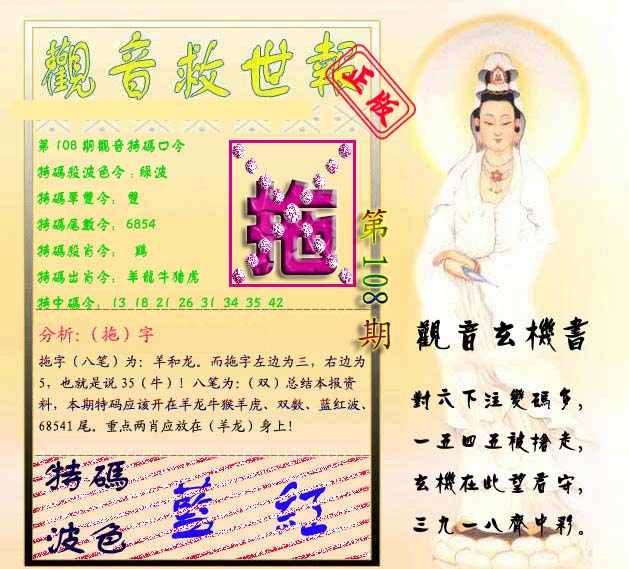 觀音救世報
正版
第108期觀音特碼口令
特碼殺波色令：綠波
特碼單雙令： 雙
特碼尾數令： 6854
特碼殺肖令： 鷄
特碼出肖令： 羊龍牛猪虎
特中碼令： 13 18 21 26 31 34 35 42
拖
第108期
分析:（拖）字
拖字（八笔）为：羊和龙。而拖字左边为三，右边为
5，也就是说 35（牛）！八笔为：（双）总结本报资
料，本期特码应该开在羊龙牛猴羊虎、双数、蓝红波、
68541 尾。重点两肖应放在（羊龙）身上！
特碼
波色
藍 紅
觀音玄機書
對六下注雙碼多，
一五四五被搶走，
玄機在此望君守，
三九一八齊中彩。